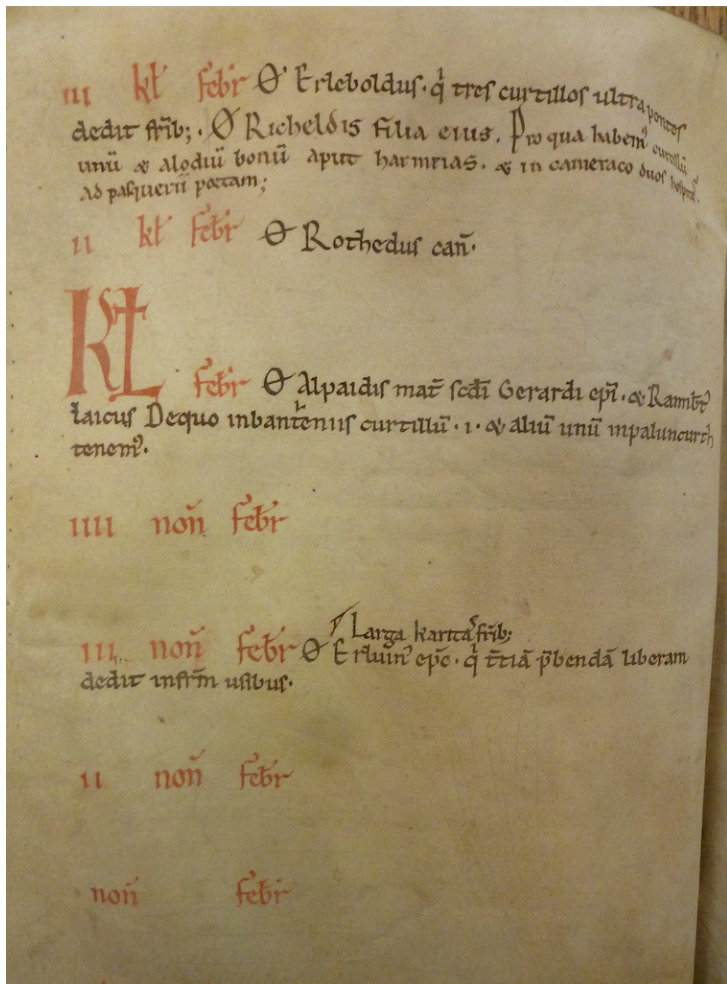 iii kł febr̄ O Erleboldus · q̇ tres curtillos ultra pontes
dedit fr̄ib; · O Richeldis filia eius. Pro qua habem᷒ curtillū
unū & alodiū bonū aput harmtias. & in cameraco duos
ad pasquerii portam;
ii kł febr̄ O Rothedus can̄.
KŁ febr̄ O Alpaidis mat̄ sc̄di Gerardi ep̄i. & Rainb̄t
laicus De quo in banteniis curtillū · i · & aliū unū in paluncurth
tenem᷒.
iiii non̄ febr̄
Larga karitas fr̄ib;
iii non̄ febr̄ O Erluin᷒ ep̄c · q̇ t̄tiā p̄bendā liberam
dedit infr̄m usibus.
ii non̄ febr̄
non̄ febr̄